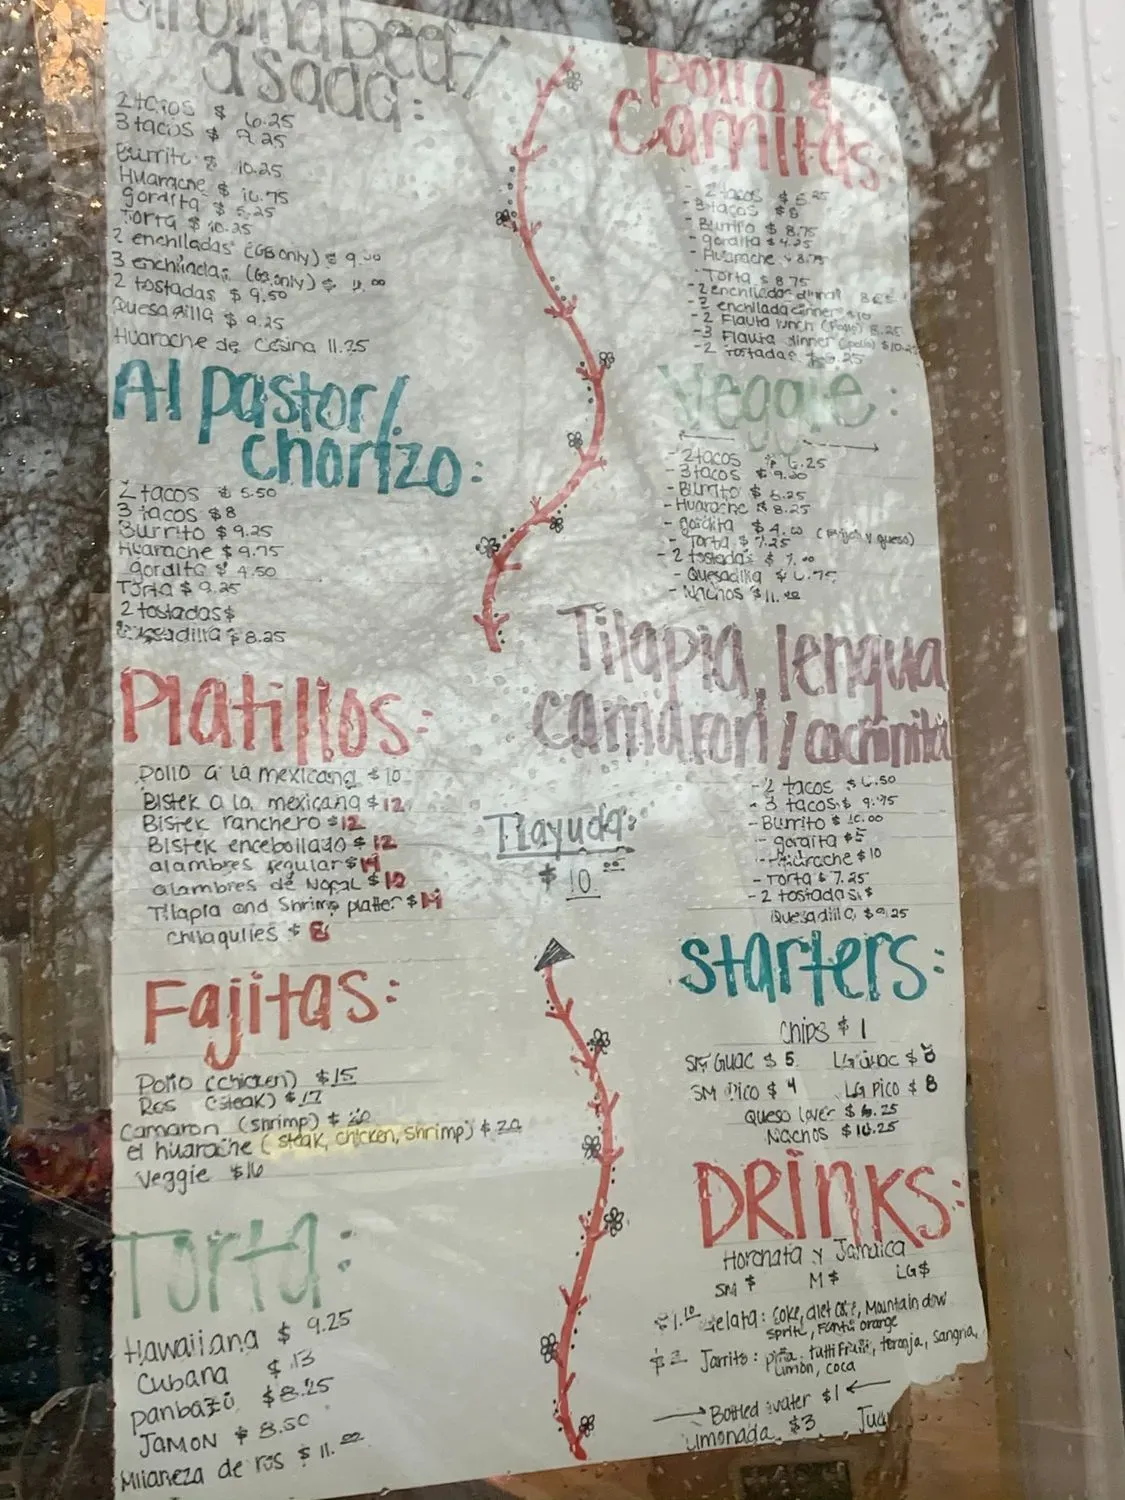 Ground beef/
asada:
2 tacos $ 6.25
3 tacos $ 9.25
Burrito $ 10.25
Huarache $ 10.75
gordita $ 5.25
Torta $ 10.25
2 enchiladas (GB only) $ 9.00
3 enchiladas (GB only) $ 11.00
2 tostadas $ 9.50
Quesadilla $ 9.25
Huarache de Cesina 11.25
Al pastor/
chorizo:
2 tacos $ 5.50
3 tacos $8
Burrito $ 9.25
Huarache $ 9.75
gordita $ 4.50
Torta $ 9.25
2 tostadas $
Quesadilla $ 8.25
Platillos:
pollo a la mexicana $ 10
Bistek a la mexicana $ 12
Bistek ranchero $12
Bistek encebollado $ 12
alambres regular $14
alambres de Nopal $
Tilapia and Shrimp platter $ 14
chilaquiles $ 8
Fajitas:
Pollo (chicken) $15
Res (steak) $17
Camaron (shrimp) $ 20
el huarache (steak, chicken, shrimp) $
Veggie $16
Torta:
Hawaiiana $ 9.25
Cubana $ 13
panbazo $8.25
JAMON $ 8.50
Milaneza de res $ 11.00
Pollo &
Carnitas:
- 2 tacos $ 5.25
- 3 tacos $8
- Burrito $ 8.75
- gordita $ 4.25
- Huarache $ 8.75
- Torta $ 8.75
- 2 enchiladas
- enchilada dinner $10
- 2 Flauta lunch (pollo) 8.25
- 3 Flauta dinner (pollo) $10.25
- 2 Tostadas
Veggie:
- 2 tacos $ 6.25
- 3 tacos $ 9.00
- Burrito $
- Huarache $ 8.25
- gordita $ 4.00 (frijol y queso)
- Torta $ 7.25
- 2 tostadas $ 7.00
- Quesadilla $ 6.75
- Nachos $11.00
Tilapia, lengua
camaron/cochinita
- 2 tacos $ 6.50
- 3 tacos $ 9.75
- Burrito $ 10.00
- gordita $5
- Huarache $ 10
- Torta $ 7.25
- 2 tostadas $
Quesadilla $9.25
Tlayuda:
$ 10.
starters:
Chips $ 1
SM GUAC $ 5 LG Guac $ 8
SM Pico $ 4 LG Pico $ 8
Queso lover $ 6.25
Nachos $ 10.25
DRINKS:
Horchata y Jamaica
SM $ M $ LG $
$1.10 gelata: Coke, diet coke, Mountain dew
sprite, Fanta orange
$ 2 Jarrito: piña, tutti Fruiti, toronja, sangria,
Limon, coca
Bottled water $1
Limonada $3